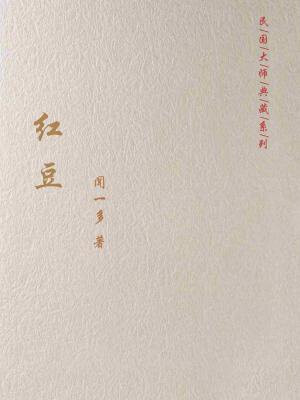 民/国/大/师/典/藏/系/列
红豆
闻一多 著